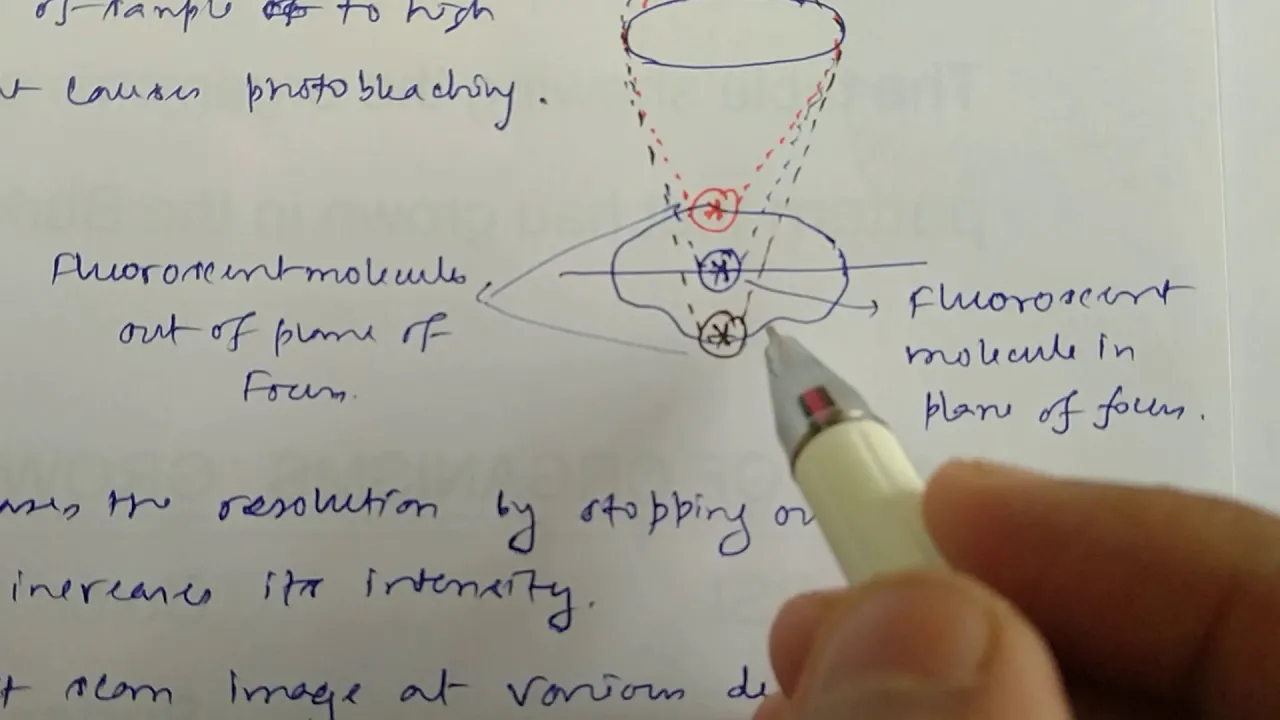 of sample to high
causes photobleaching.
Fluoroscent molecule
out of plane of
Focus.
Fluoroscent
molecule in
plane of focus.
the resolution by stopping
increases its intensity.
scan image at various